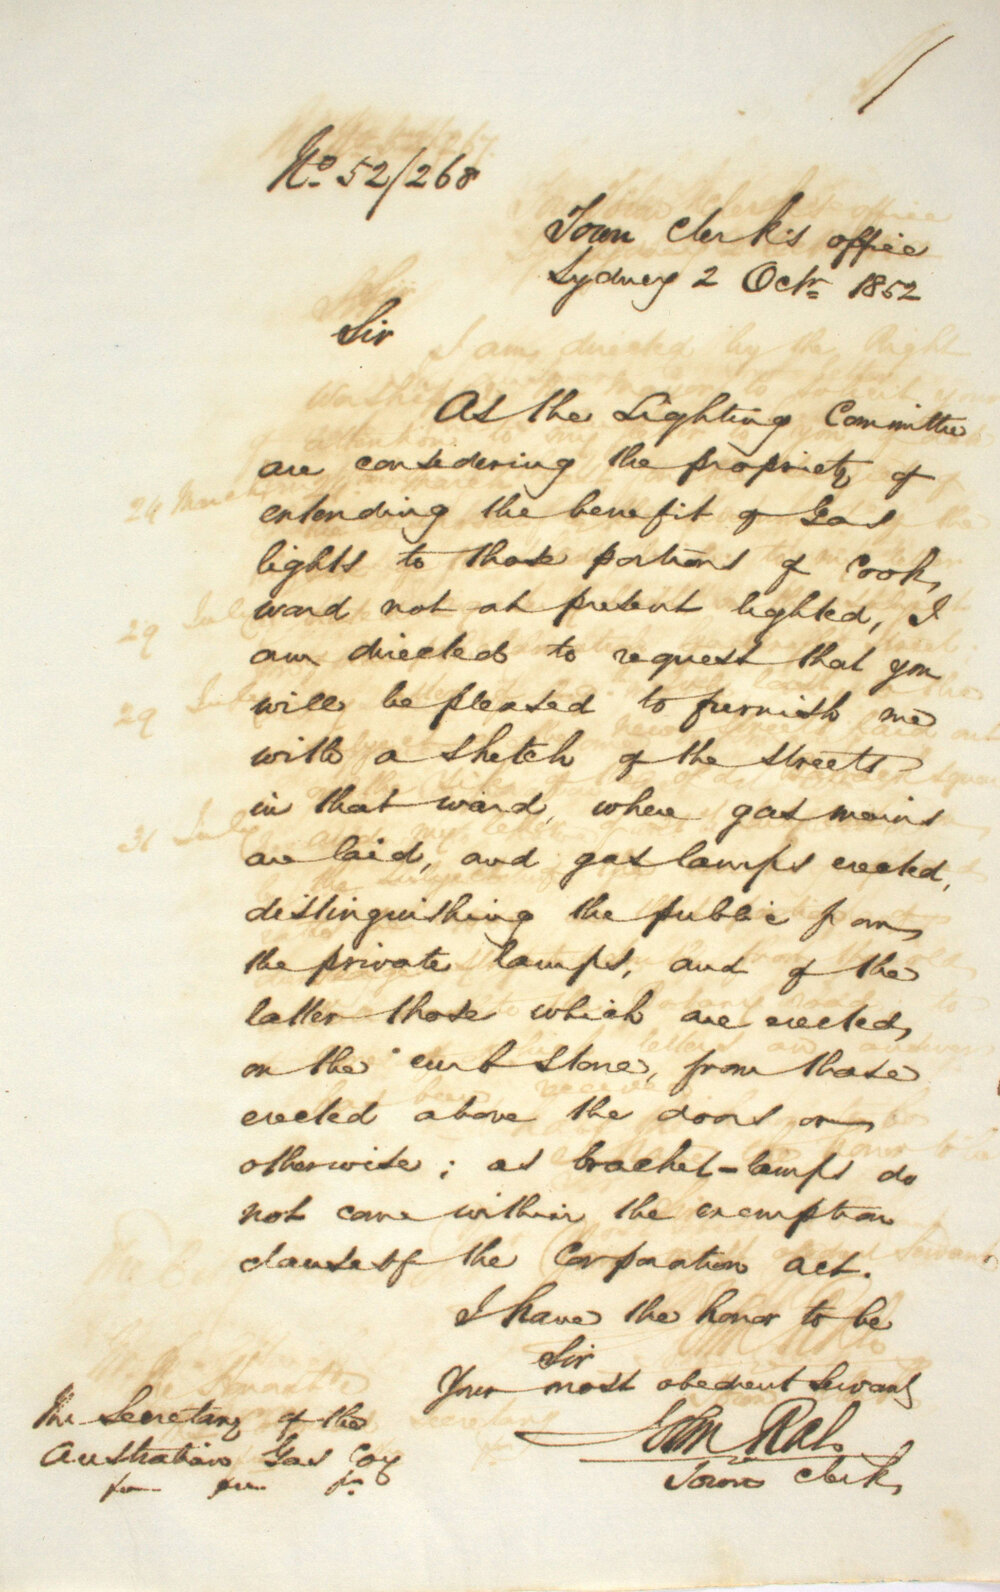 No. 52/268
Town Clerk's office
Sydney 2 Octr. 1852
Sir
As the Lighting Committee
are considering the propriety of
extending the benefit of Gas
lights to those portions of Cook
ward not at present lighted, I
am directed to request that you
will be pleased to furnish me
with a sketch of the streets
in that ward, where gas mains
are laid, and gas lamps erected,
distinguishing the public from
the private lamps, and of the
latter those which are erected
on the curb stone, from those
erected above the doors or
otherwise; as bracket-lamps do
not come within the exemption
clause of the Corporation act.
I have the honor to be
Sir
Your most obedient Servant
John Rae
Town Clerk
The Secretary of the
Australian Gas Coy